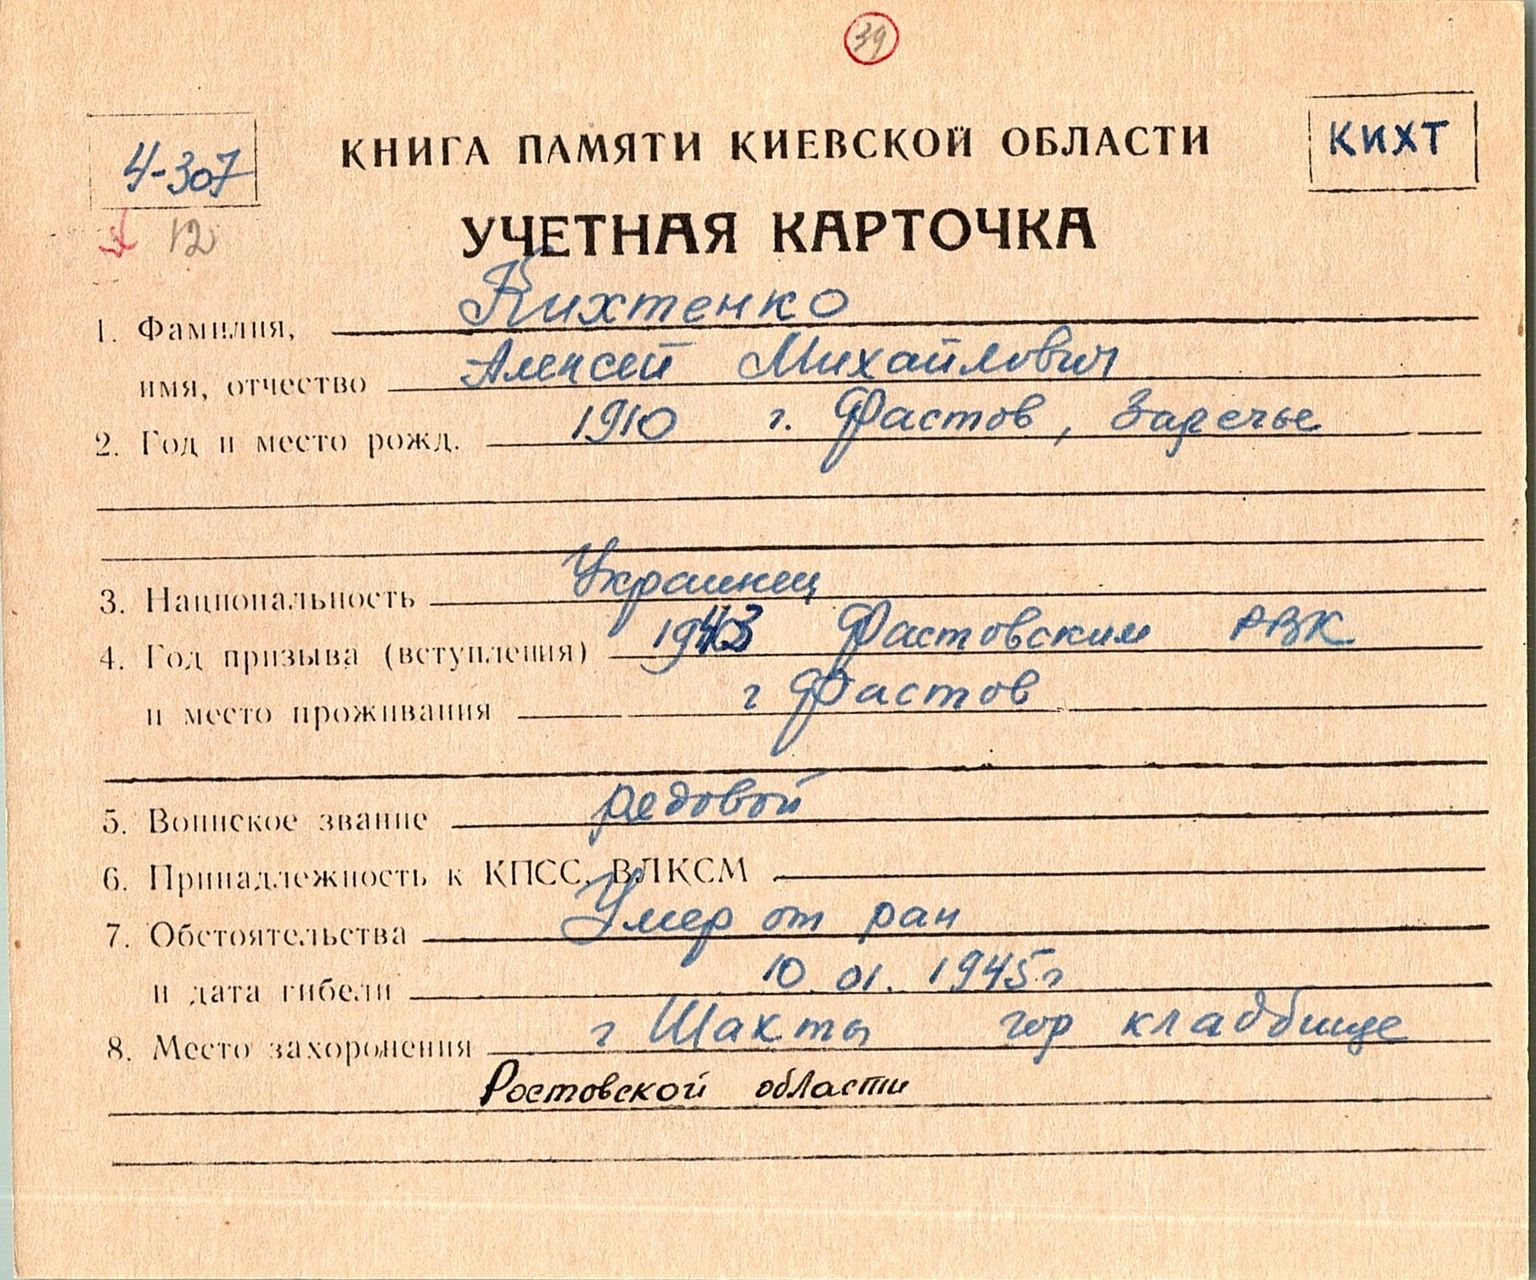 39
4-307
КНИГА ПАМЯТИ КИЕВСКОЙ ОБЛАСТИ
КИХТ
12
УЧЕТНАЯ КАРТОЧКА
1. Фамилия, Кихтенко
имя, отчество Алексей Михайлович
2. Год и место рожд. 1910 г. Фастов, Заречье
3. Национальность Украинец
4. Год призыва (вступления) 1943 Фастовским РВК
и место проживания г Фастов
5. Воинское звание рядовой
6. Принадлежность к КПСС, ВЛКСМ
7. Обстоятельства Умер от ран
и дата гибели 10.01.1945г
8. Место захоронения г Шахты гор кладбище
Ростовской области